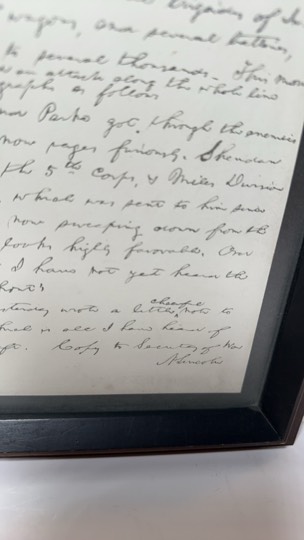 brigades of
wagons, and several batteries,
to several thousands. This morn
an attack along the whole line
graphs as follows
Parke got through the enemies
now rages furiously. Sheridan
the 5th Corps, & Miles Division
which was sent to him since
now sweeping down from the
looks highly favorable. Our
I have not yet heard the
hont's
esterday wrote a little cheerful note to
which is all I have heard of
Copy to Secretary of War
A Lincoln